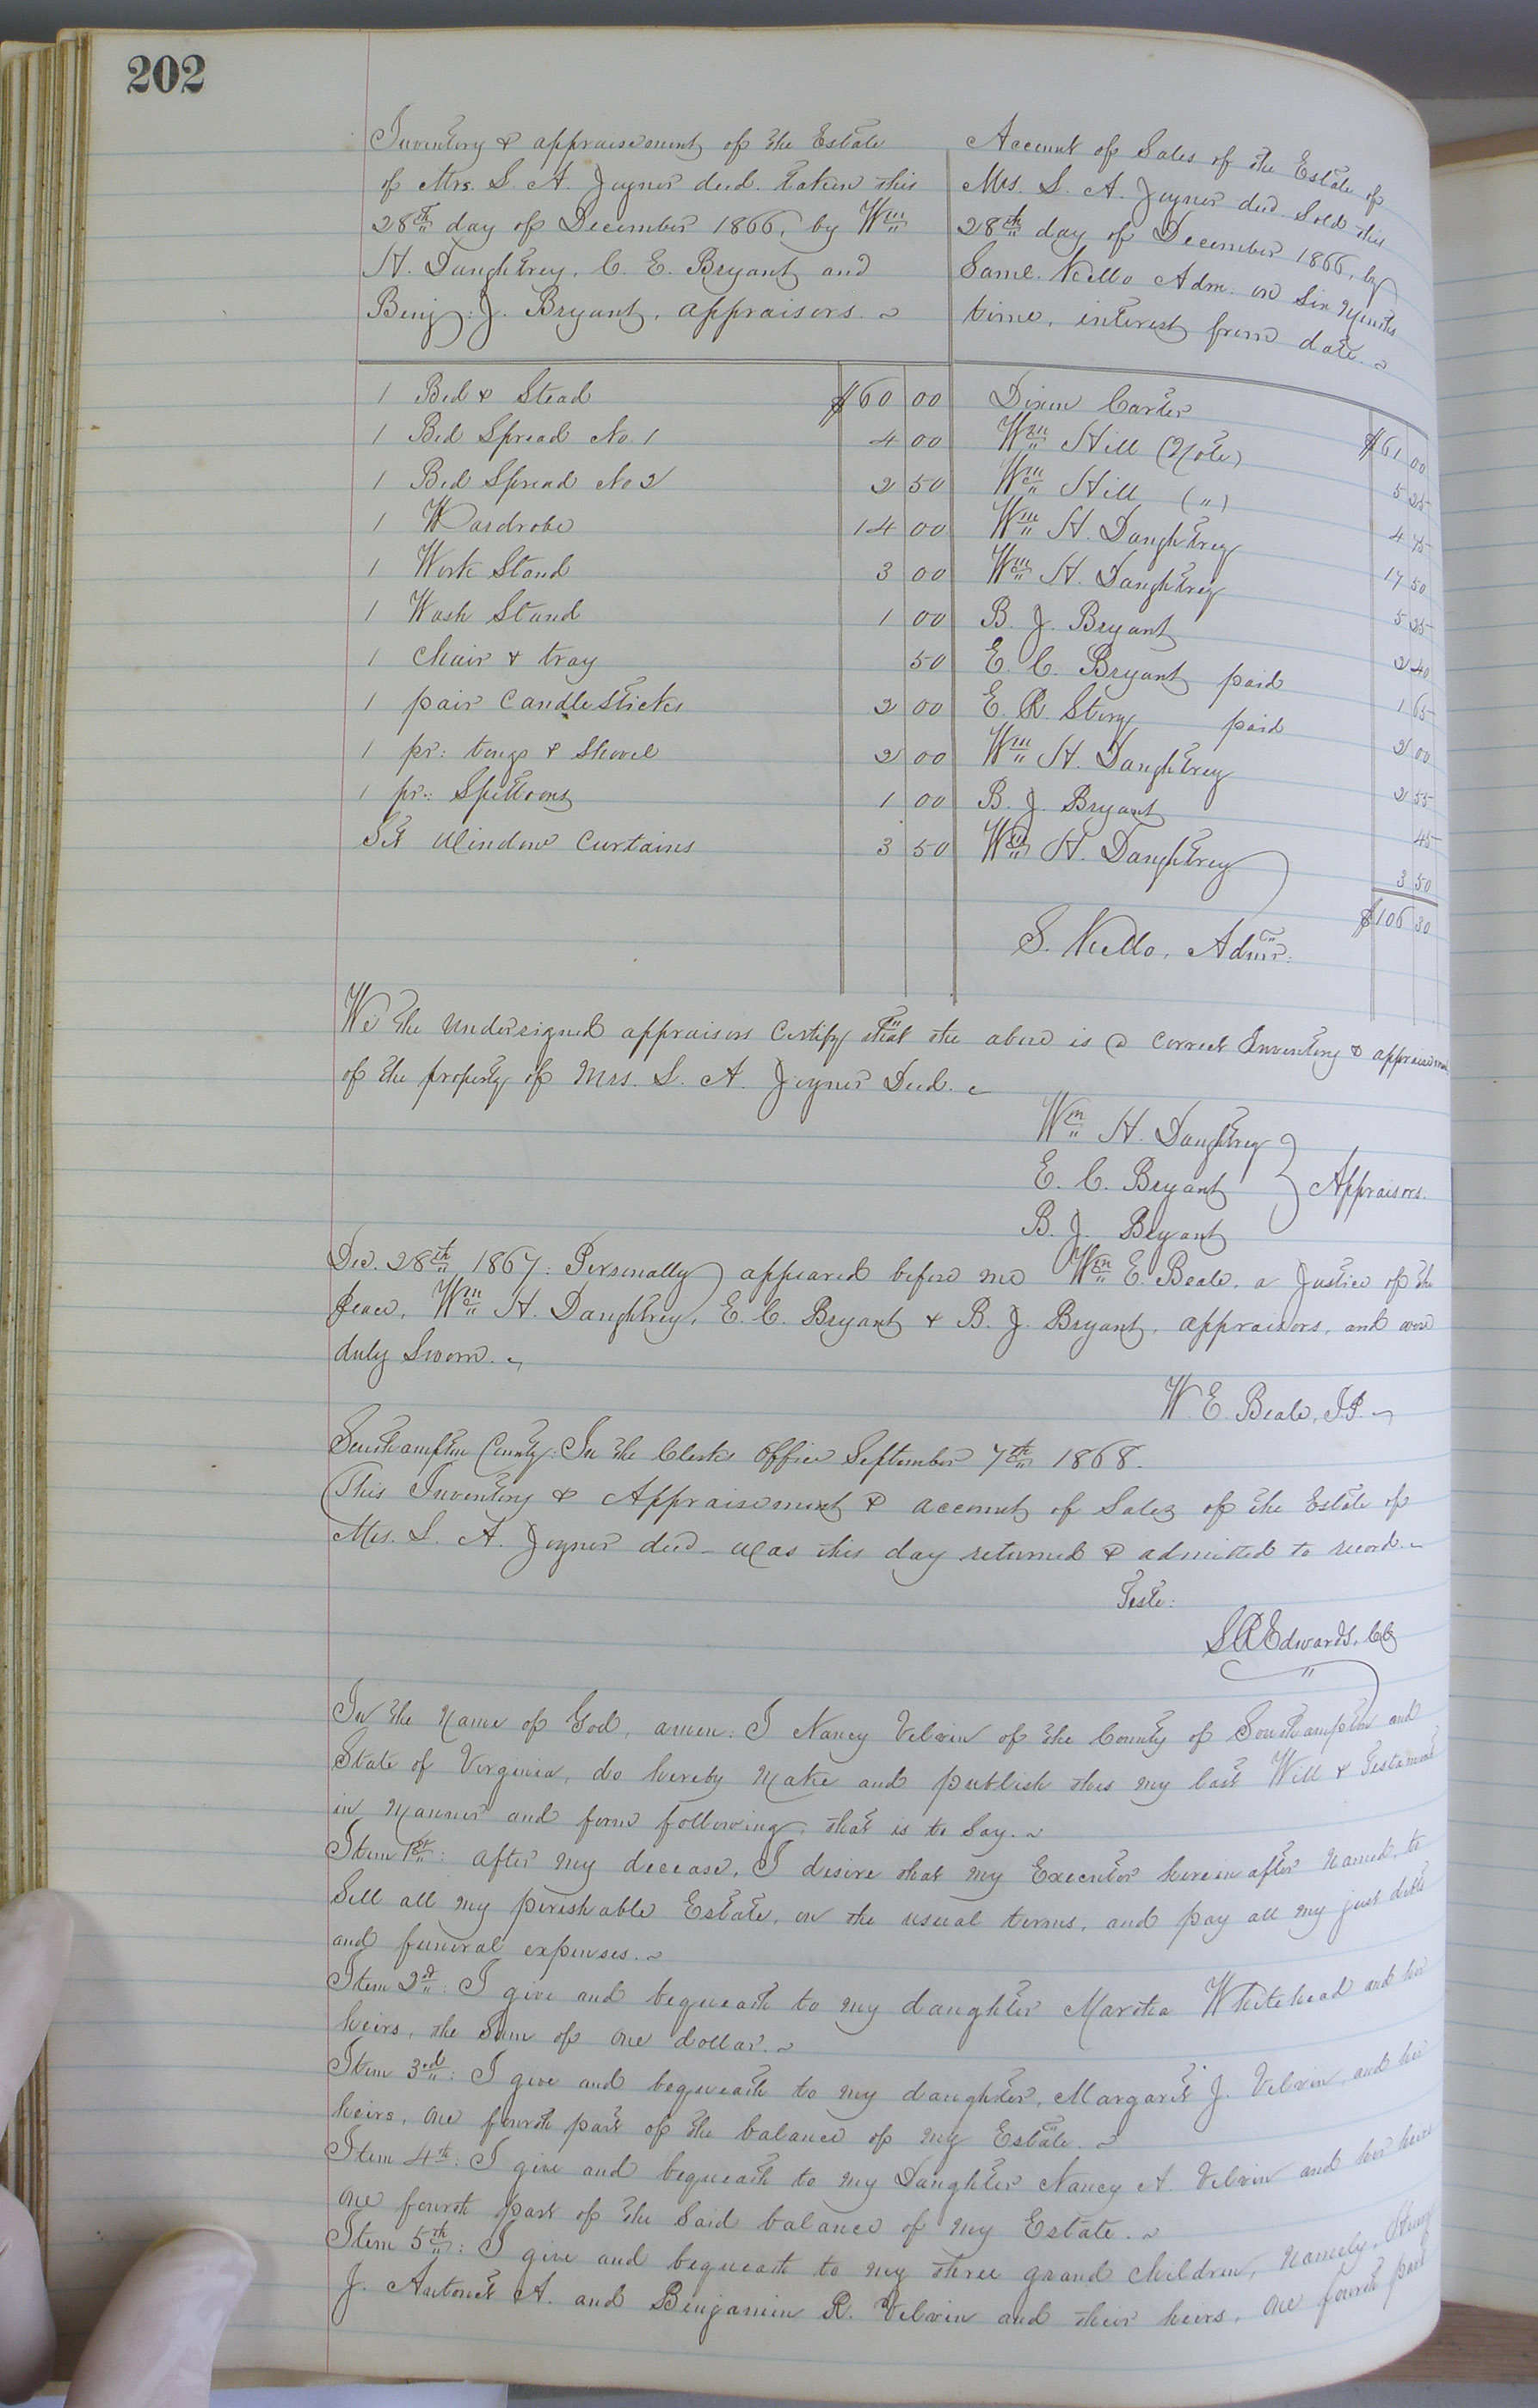 202
Inventory & appraisement of the Estate
of Mrs. S. A. Joyner decd. taken this
28th day of December 1866, by Wm
H. Daughtrey, C. E. Bryant and
Benj: J. Bryant, appraisers.
Account of Sales of the Estate of
Mrs. S. A. Joyner decd. Sold this
28th day of December 1866, by
Saml. Kello Adm. on Six Months
time, interest from date.
1 Bed & Stead $60 00 Dixon Carter $61 00
1 Bed Spread No. 1 4 00 Wm Hill (Note) 5 25
1 Bed Spread No 2 2 50 Wm Hill (") 4 75
1 Wardrobe 14 00 Wm H. Daughtrey 17 50
1 Work Stand 3 00 Wm H. Daughtrey 5 25
1 Wash Stand 1 00 B. J. Bryant 2 40
1 Chair & tray 50 E. C. Bryant paid 1 65
1 pair Candlesticks 2 00 E. R. Story paid 2 00
1 pr: tongs & Shovel 2 00 Wm H. Daughtrey 2 55
1 pr: Spittoons 1 00 B. J. Bryant 45
Set Window Curtains 3 50 Wm H. Daughtrey 3 50
$106 30
S. Kello, Admr:
We the undersigned appraisers Certify that the above is a Correct Inventory & appraisement
of the property of Mrs. S. A. Joyner Decd.
Wm H. Daughtrey
E. C. Bryant Appraisers.
B. J. Bryant
Dec. 28th 1867: Personally appeared before me Wm E. Beale, a Justice of the
Peace, Wm H. Daughtrey, E. C. Bryant & B. J. Bryant, appraisers, and were
duly Sworn.
W. E. Beale, J.P.
Southampton County: In the Clerks Office September 7th 1868.
This Inventory & Appraisement & account of Sales of the Estate of
Mrs. S. A. Joyner decd- was this day returned & admitted to record.
Teste:
L R Edwards, CC
In the Name of God, amen: I Nancy Velvin of the County of Southampton and
State of Virginia, do hereby Make and publish this my last Will & Testament
in Manner and form following, that is to Say.
Item 1st: after my decease, I desire that my Executor hereinafter named, to
Sell all my perishable Estate, on the usual terms, and pay all my just debts
and funeral expenses.
Item 2d: I give and bequeath to my daughter Martha Whitehead and her
heirs, the Sum of one dollar.
Item 3rd: I give and bequeath to my daughter, Margaret J. Velvin, and her
heirs, one fourth part of the balance of my Estate.
Item 4th: I give and bequeath to my Daughter Nancy A. Velvin and her heirs
one fourth part of the Said balance of my Estate.
Item 5th: I give and bequeath to my three grand Children, Namely, Henry
J. Antonet A. and Benjamin R. Velvin and their heirs, one fourth part